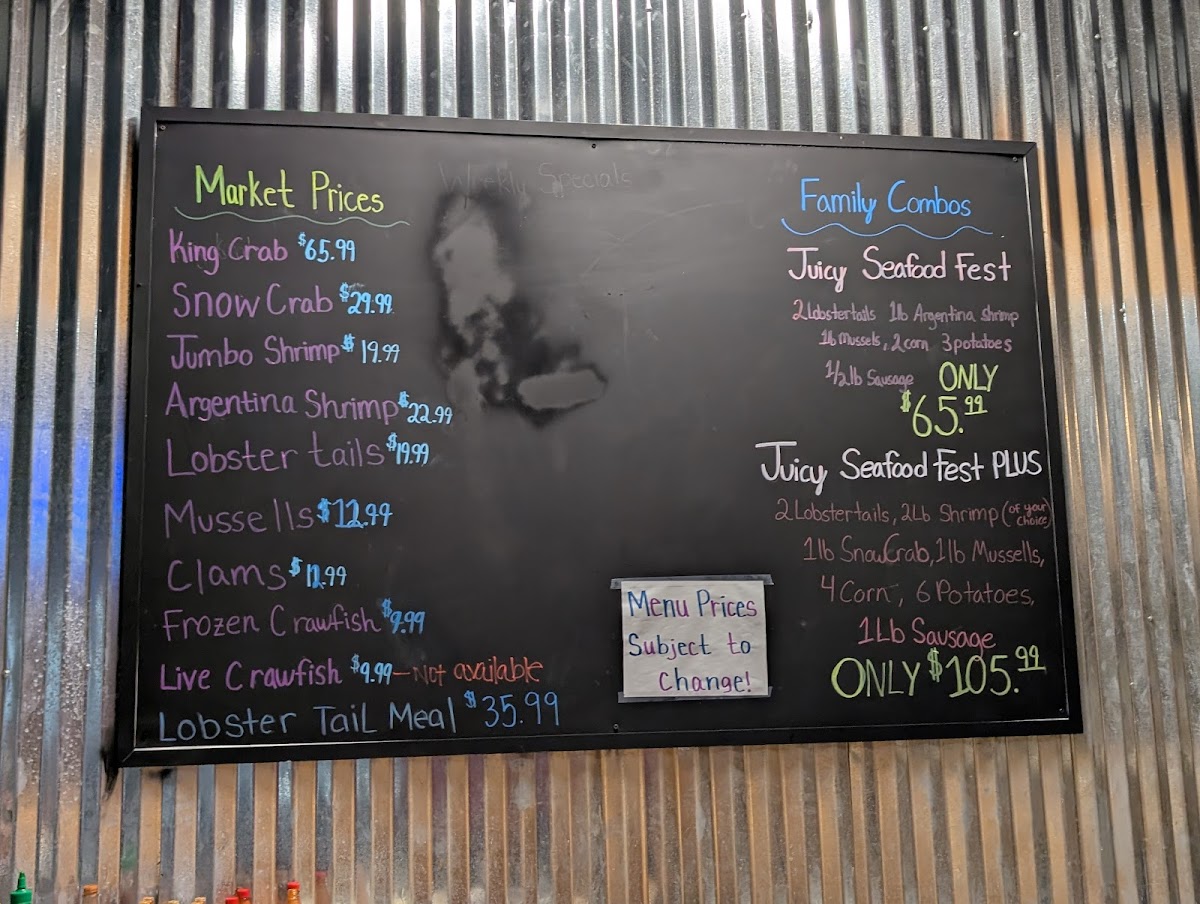 Market Prices
King Crab $65.99
Snow Crab $29.99
Jumbo Shrimp $19.99
Argentina Shrimp $22.99
Lobster tails $19.99
Mussells $12.99
Clams $11.99
Frozen Crawfish $9.99
Live Crawfish $9.99 - Not available
Lobster Tail Meal $35.99
Weekly Specials
Menu Prices
Subject to
Change!
Family Combos
Juicy Seafood Fest
2 Lobstertails 1lb Argentina shrimp
1lb Mussels, 2 corn 3 potatoes
1/2 lb Sausage ONLY
$65.99
Juicy Seafood Fest PLUS
2 Lobstertails, 2Lb Shrimp (of your choice)
1lb SnowCrab, 1lb Mussells,
4 Corn, 6 Potatoes,
1Lb Sausage
ONLY $105.99